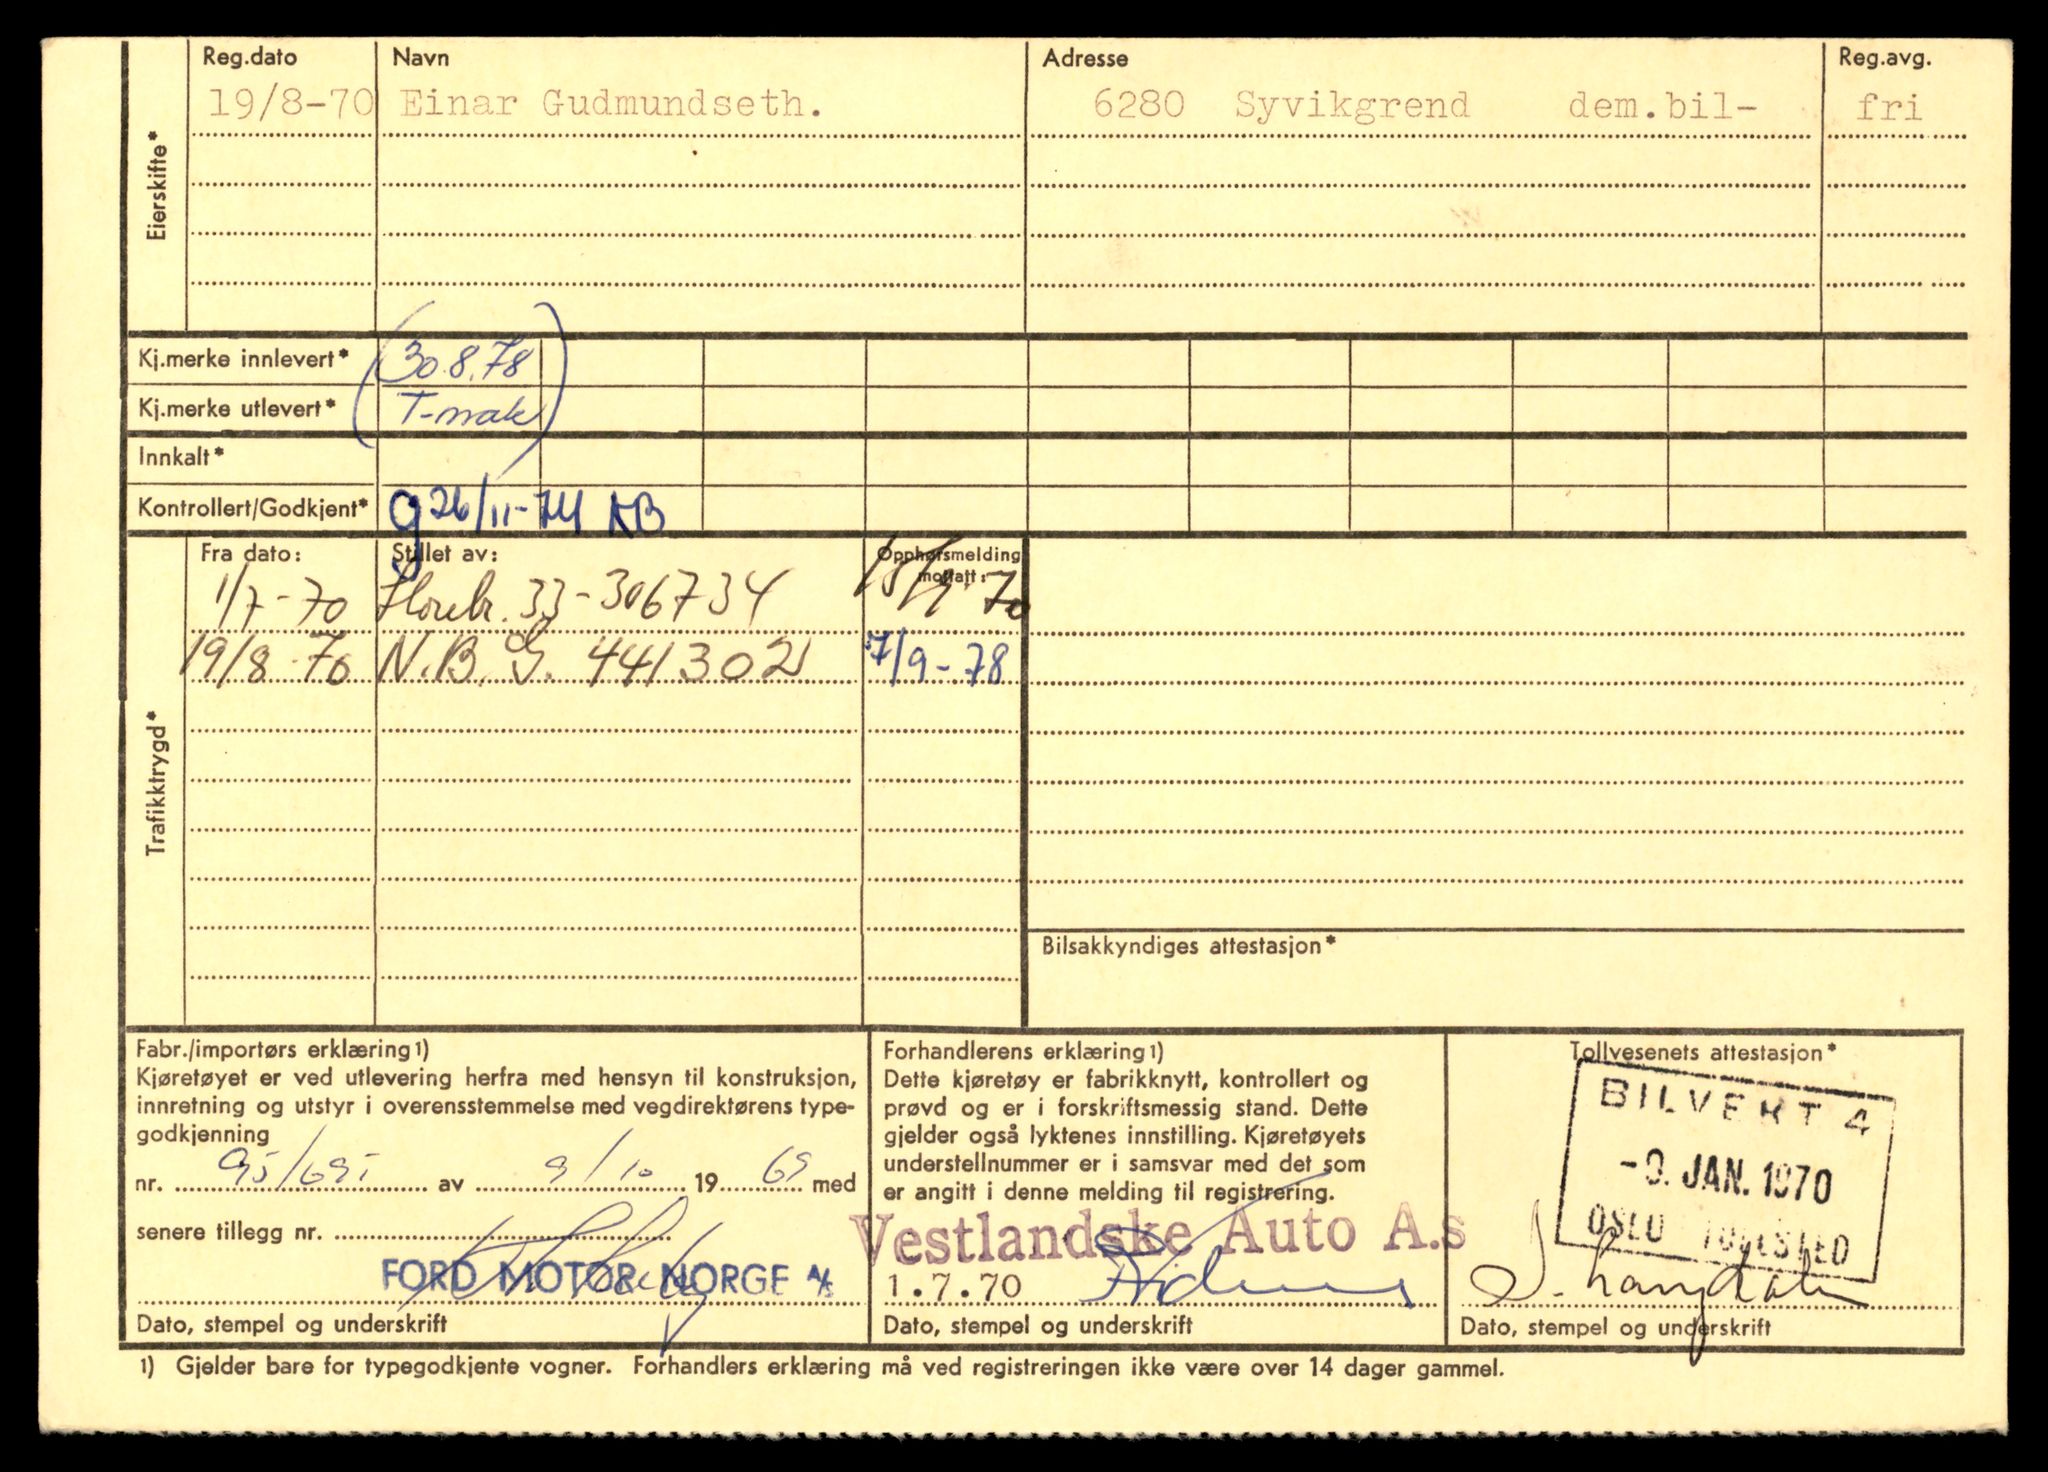 Reg.dato Navn Adresse Reg.avg.
19/8-70 Einar Gudmundseth. 6280 Syvikgrend dem.bil- fri
Eierskifte*
Kj.merke innlevert* (30.8.78
Kj.merke utlevert* T-mak)
Innkalt*
Kontrollert/Godkjent* g 26/11-74 AB
Fra dato: Stillet av: Opphørsmelding mottatt:
1/7-70 33-306734 70
19/8-70 N.B.G. 441302 7/9-78
Trafikktrygd*
Bilsakkyndiges attestasjon*
Fabr./importørs erklæring1)
Kjøretøyet er ved utlevering herfra med hensyn til konstruksjon,
innretning og utstyr i overensstemmelse med vegdirektørens type-
godkjenning
nr. av 9/10 1969 med
senere tillegg nr.
FORD MOTOR NORGE A/S
Dato, stempel og underskrift
Forhandlerens erklæring1)
Dette kjøretøy er fabrikknytt, kontrollert og
prøvd og er i forskriftsmessig stand. Dette
gjelder også lyktenes innstilling. Kjøretøyets
understellnummer er i samsvar med det som
er angitt i denne melding til registrering.
Vestlandske Auto A.s
1.7.70
Dato, stempel og underskrift
Tollvesenets attestasjon*
BILVEKT 4
-9. JAN. 1970
OSLO TOLLSTED
Dato, stempel og underskrift
1) Gjelder bare for typegodkjente vogner. Forhandlers erklæring må ved registreringen ikke være over 14 dager gammel.